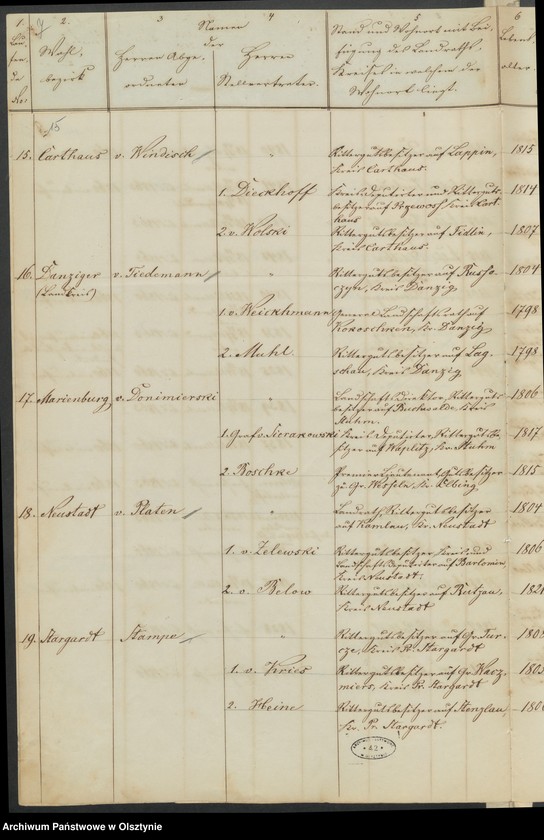 1. 2. 3 4 5 6
Namen
der
Wahl-
bezirk
Herren Abge-
ordneten
Herren
Stellvertreter.
Stand und Wohnort mit Bei-
fügung des Landräthl.
Kreises in welchem der
Wohnort liegt.
Lebens
alter
15
15. Carthaus v. Windisch " Rittergutsbesitzer auf Lappin, 1815
Kreis Carthaus.
1. Dieckhoff Kreisdeputirter und Ritterguts- 1814
besitzer auf Kreis Cart
haus
2. v. Wolski Rittergutsbesitzer auf Fidlin, 1807
Kreis Carthaus.
16. Danziger v. Tiedemann " Rittergutsbesitzer auf Russo- 1804
(Landkreis) czyn, Kreis Danzig
1. v. Weickhmann General Landschafts Rath auf 1798
Kokoschken, Kr. Danzig
2. Muhl Rittergutsbesitzer auf Lag- 1798
schau, Kreis Danzig
17. Marienburg v. Donimierski " Landschafts Direktor, Ritterguts- 1806
besitzer auf Buchwalde, Kreis
Stuhm.
1. Graf v. Sierakowski Kreis Deputirter, Rittergutsbe- 1817
sitzer auf Waplitz, Kr. Stuhm
2. Boschke Premier Lieutenant, Gutsbesitzer 1815
zu Gr. Wesseln, Kr. Elbing
18. Neustadt v. Platen " Landrath, Rittergutsbesitzer 1804
auf Kamlau, Kr. Neustadt
1. v. Zelewski Rittergutsbesitzer, Kreis- und 1806
Landschafts Deputirter auf Barlomin,
Kreis Neustadt.
2. v. Below Rittergutsbesitzer auf Rutzau,
Kreis Neustadt
19. Stargardt Stampe " Rittergutsbesitzer auf Gr. Tur-
cze, Kreis Pr. Stargardt
1. v. Kries Rittergutsbesitzer auf Gr. Wacz-
miers, Kreis Pr. Stargardt
2. Heine Rittergutsbesitzer auf Stenzlau,
Kr. Pr. Stargardt.
Archiwum Państwowe w Olsztynie